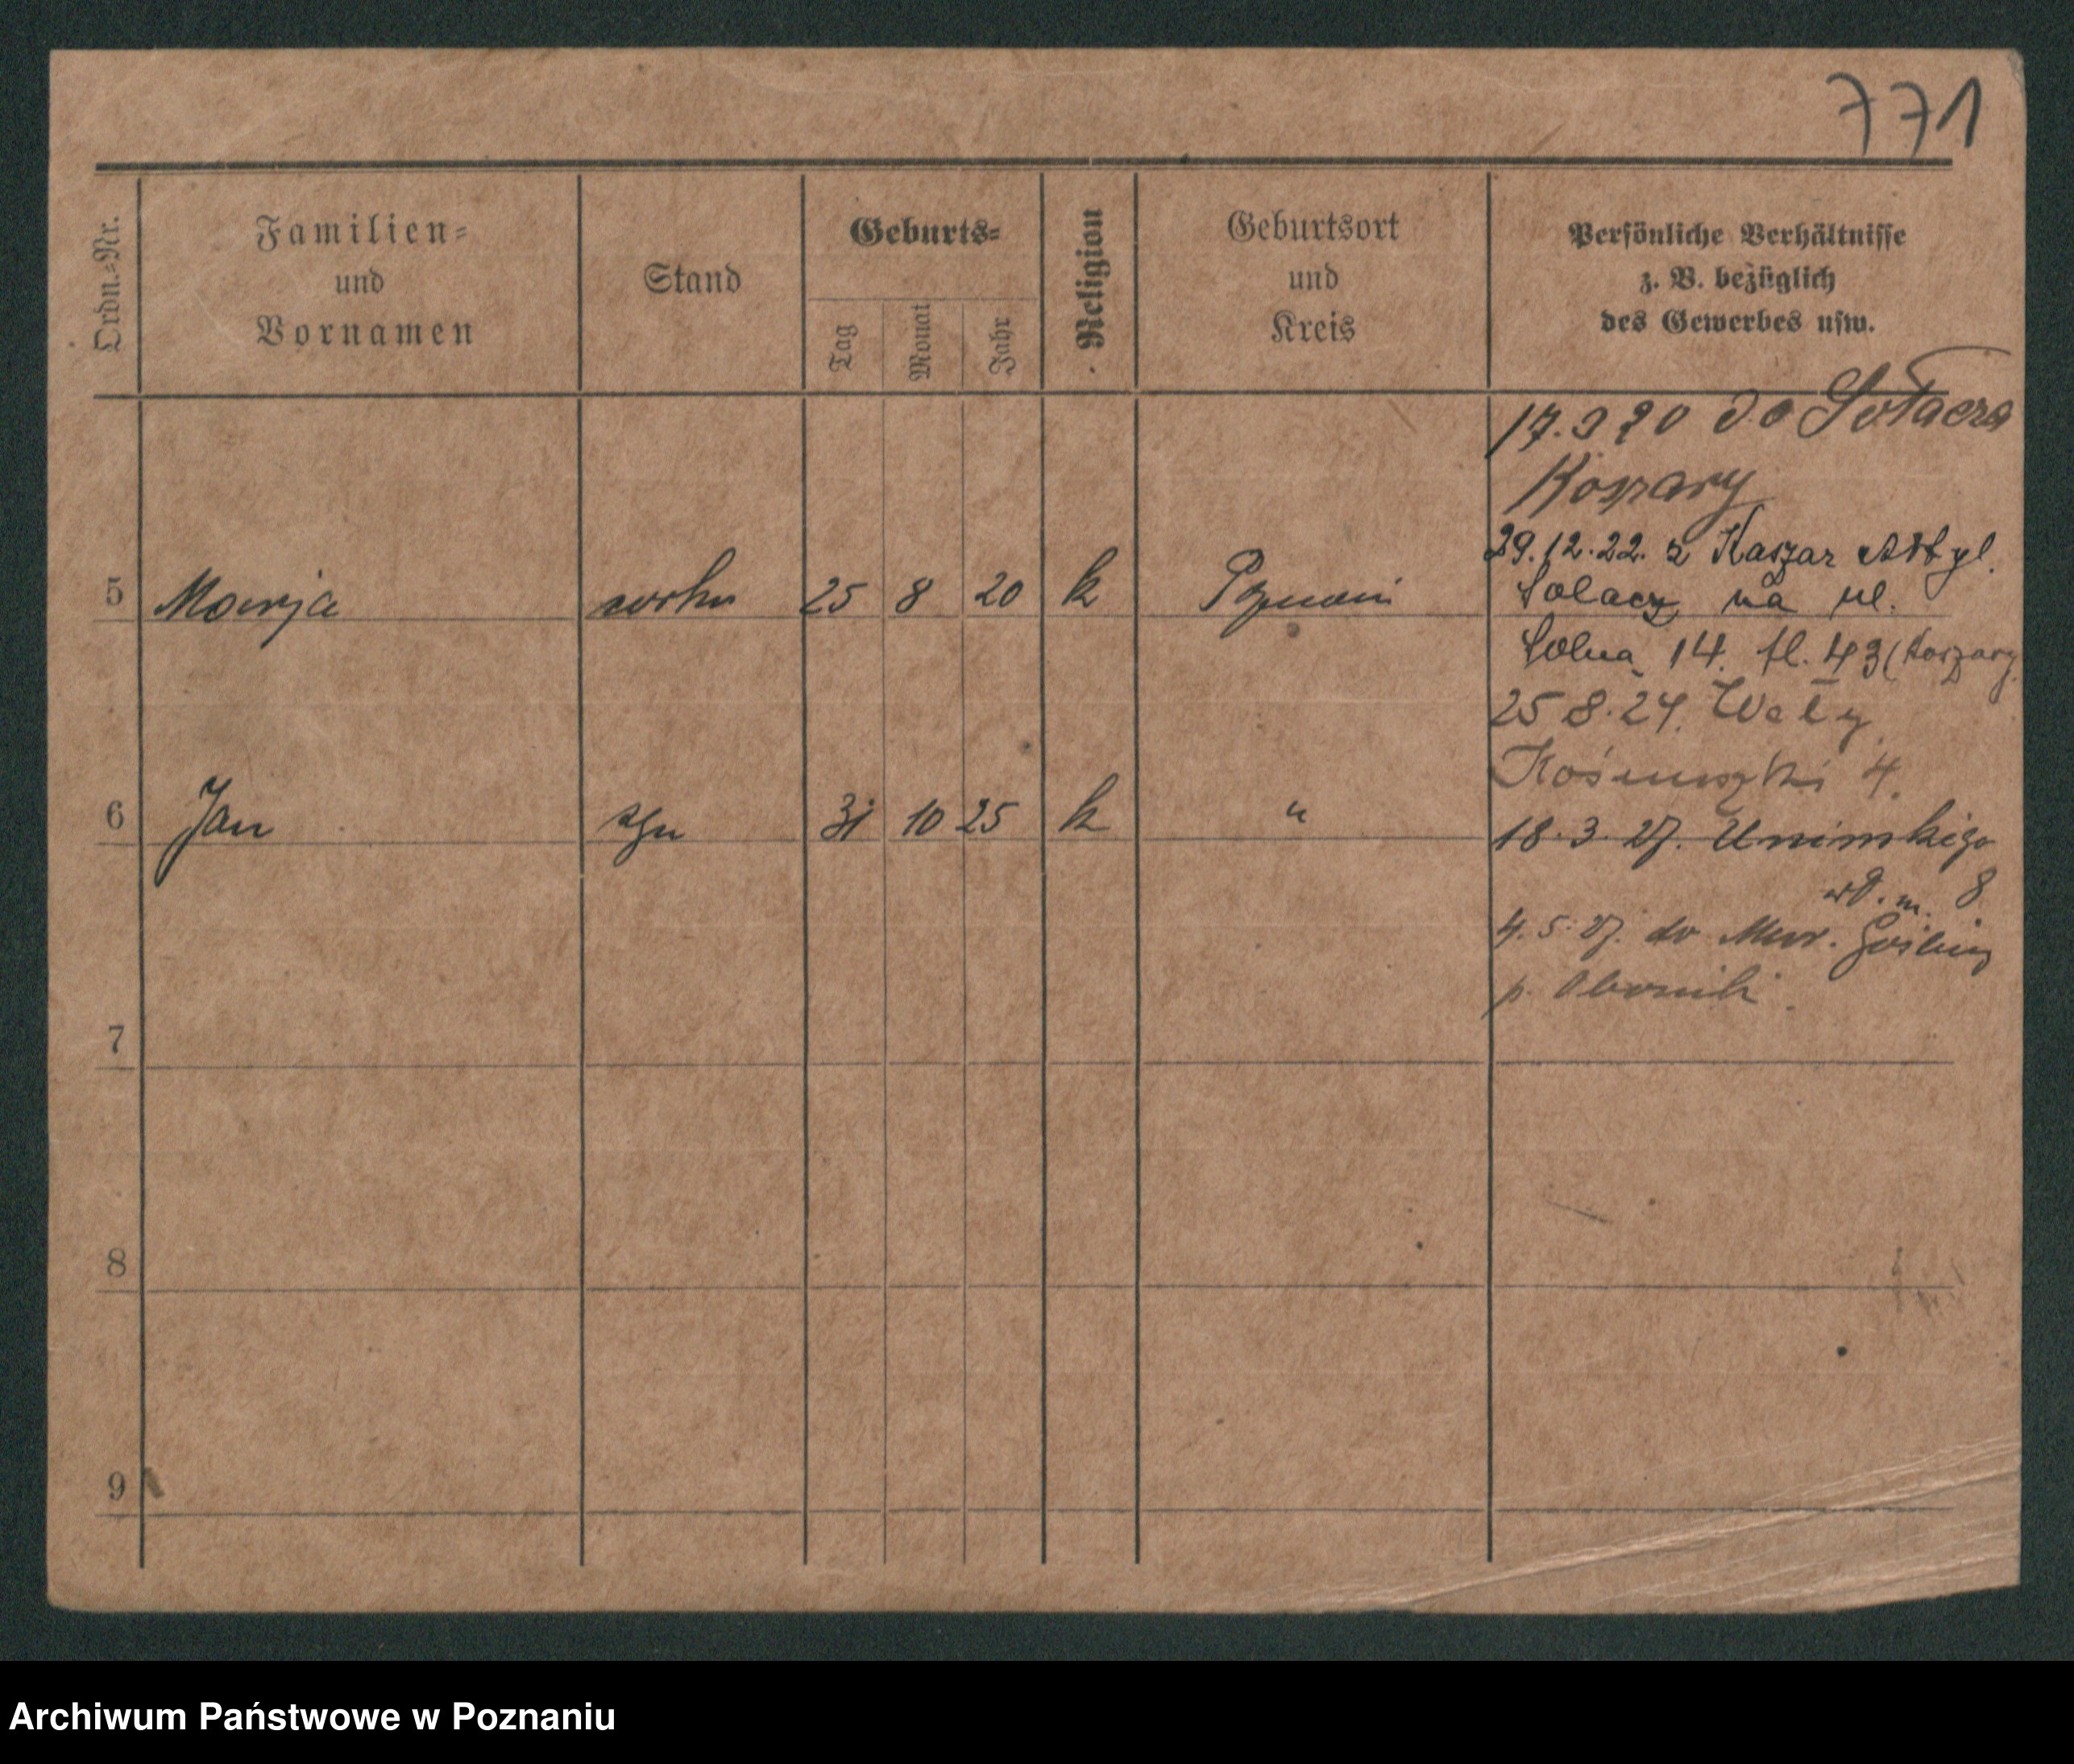 771
Ordn.=Nr.
Familien=
und
Vornamen
Stand
Geburts=
Tag
Monat
Jahr
Religion
Geburtsort
und
Kreis
Persönliche Verhältnisse
z. B. bezüglich
des Gewerbes usw.
17.9 20 do Sołacza
Koszary
5 Marija córka 25 8 20 k Poznań
29.12.22. z Kaszar Art yl.
Solacz na ul.
Solna 14. fl. 43 (Koszary
25 8.24. Wały
Kościuszki 4.
6 Jan syn 31 10 25 k "
18.3.27. Unimskiego
m. 8
4.5.27. do Mur. Gośliny
p. Oborniki.
7
8
9
Archiwum Państwowe w Poznaniu